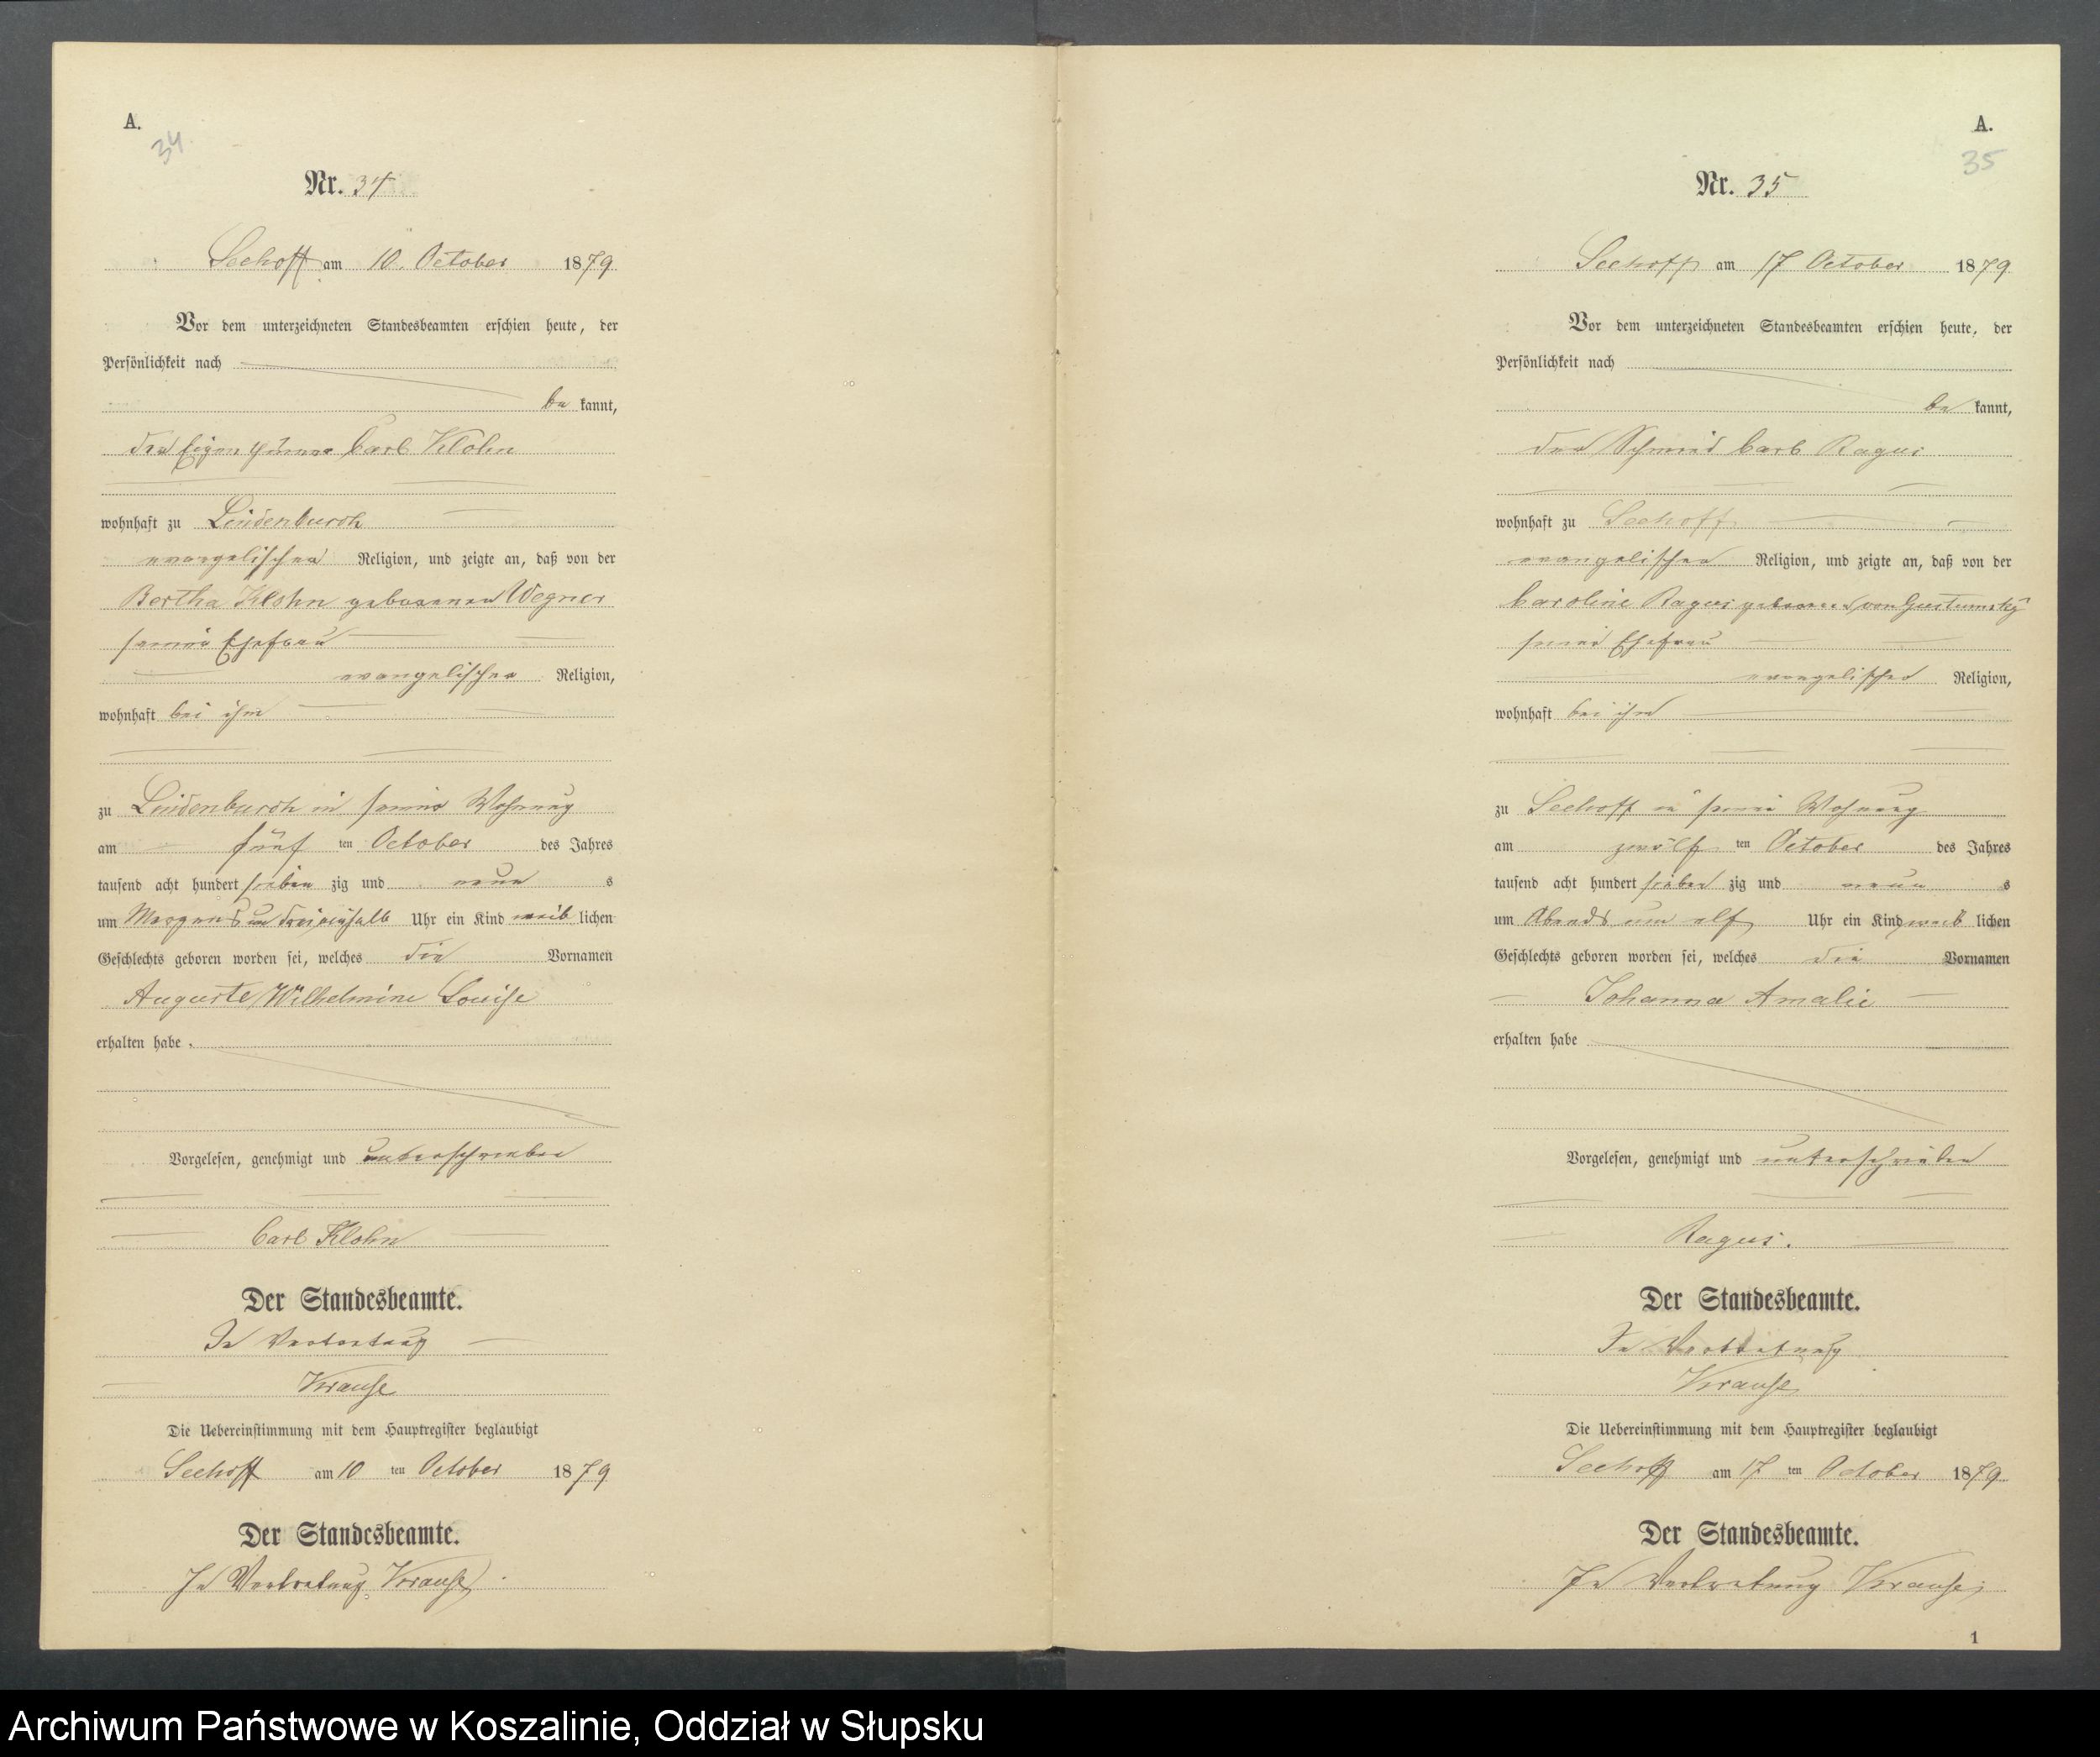 A.
34
Nr. 34
Seehoff am 10. October 1879
Vor dem unterzeichneten Standesbeamten erschien heute, der
Persönlichkeit nach
be kannt,
der Eigenthümer Carl Klohn
wohnhaft zu Lindenbusch
evangelischer Religion, und zeigte an, daß von der
Bertha Klohn geborenen Wegner
seiner Ehefrau
evangelischer Religion,
wohnhaft bei ihm
zu Lindenbusch in seiner Wohnung
am fünf ten October des Jahres
tausend acht hundert sieben zig und neun s
um Morgens um drei einhalb Uhr ein Kind weib lichen
Geschlechts geboren worden sei, welches die Vornamen
Auguste Wilhelmine Louise
erhalten habe.
Vorgelesen, genehmigt und unterschrieben
Carl Klohn
Der Standesbeamte.
In Vertretung
Krause
Die Uebereinstimmung mit dem Hauptregister beglaubigt
Seehoff am 10 ten October 1879
Der Standesbeamte.
In Vertretung Krause
A.
35
Nr. 35
Seehoff am 17 October 1879
Vor dem unterzeichneten Standesbeamten erschien heute, der
Persönlichkeit nach
be kannt,
der Schmied Carl Ragus
wohnhaft zu Seehoff
evangelischer Religion, und zeigte an, daß von der
Caroline Ragus geborenen von
seiner Ehefrau
evangelischer Religion,
wohnhaft bei ihm
zu Seehoff in seiner Wohnung
am zwölf ten October des Jahres
tausend acht hundert sieben zig und neun s
um Abends um elf Uhr ein Kind weib lichen
Geschlechts geboren worden sei, welches die Vornamen
Johanna Amalie
erhalten habe
Vorgelesen, genehmigt und unterschrieben
Ragus.
Der Standesbeamte.
In Vertretung
Krause
Die Uebereinstimmung mit dem Hauptregister beglaubigt
Seehoff am 17 ten October 1879
Der Standesbeamte.
In Vertretung Krause
1
Archiwum Państwowe w Koszalinie, Oddział w Słupsku